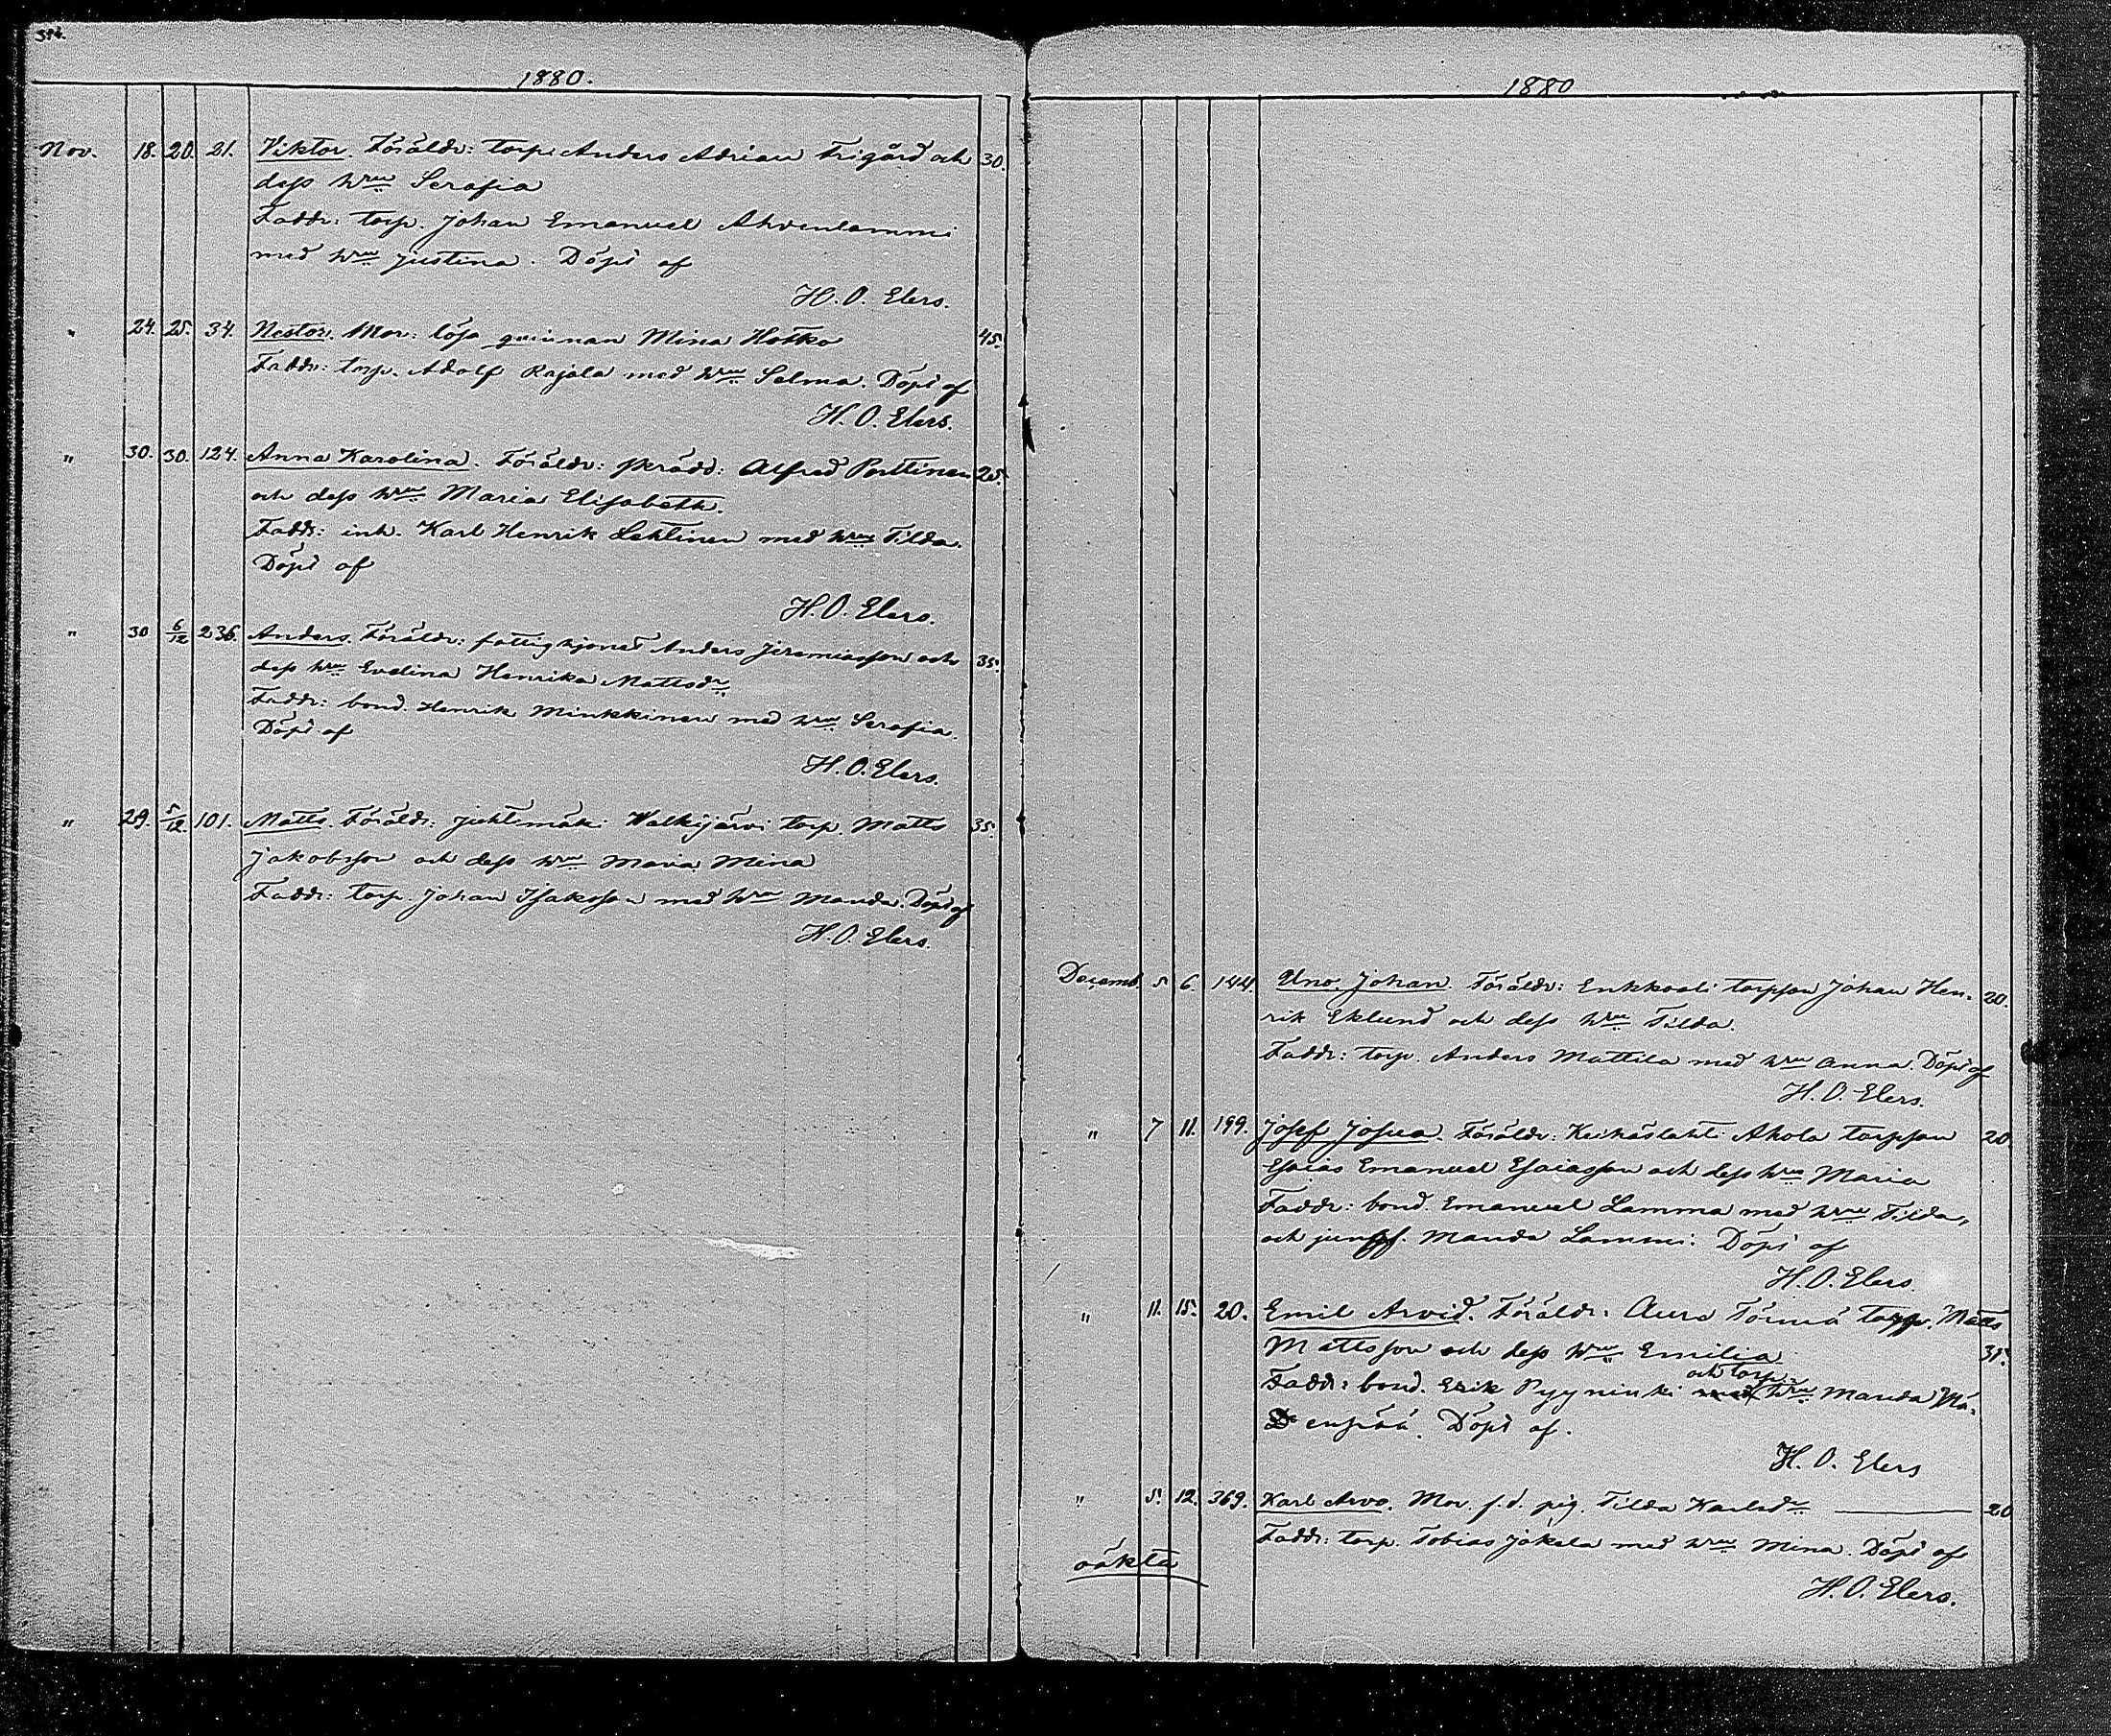 1880.
Nov. 18. 20. 21. Viktor. Föräldr: torp. Anders Adrian Frigård och 30.
dess hru Serafia
Faddr: torp. Johan Emanuel Ahvenlammi
med hru Justina. Döpt af
H. O. Elers.
" 24. 25. 34. Nestor. Mor: lösa qvinnan Mina Hotko 45.
Faddr: torp. Adolf Rajala med hru Selma. Döpt af
H. O. Elers.
" 30. 30. 124. Anna Karolina. Föräldr: skrädd: Alfred Porttinen 25.
och dess hru Maria Elisabeth.
Faddr: inh. Karl Henrik Lehtinen med hru Tilda.
Döpt af
H. O. Elers.
" 30 6/12 236. Anders. Föräldr: fattighjonet Anders Jeremiasson och 35.
dess hru Evelina Henrika Mattsdr
Faddr: bond. Henrik Minkkinen med hru Serafia.
Döpt af
H. O. Elers.
" 29. 5/12. 101. Matts. Föräldr: Juhtimäki Walkijärvi torp. Matts 35.
Jakobsson och dess hru Maria Mina
Faddr: torp. Johan Isaksson med hru Manda. Döpt af
H. O. Elers.
1880
Decemb. 5 6. 144. Uno Johan. Föräldr: Enkkooli torpson Johan Hen- 20.
rik Eklund och dess hru Tilda.
Faddr: torp. Anders Mattila med hru Anna. Döpt af
H. O. Elers.
" 7 11. 199. Josef Josua. Föräldr: Keihäslahti Ahola torpson 20
Esaias Emanuel Esaiasson och dess hru Maria
Faddr: bond. Emanuel Lamma med hru Tilda,
och jungf. Manda Lammi. Döpt af
H. O. Elers.
" 11. 15. 20. Emil Arvid. Föräldr: Aura Törmä torp. Matts
Mattsson och dess hru Emilia 31.
och torp.
Faddr: bond. Erik Pyyninki med hru Manda Mä-
enpää. Döpt af.
H. O. Elers
" 5. 12. 369. Karl Arvo. Mor. f.d. pig. Tilda Karlsdr 20
Faddr: torp. Tobias Jäkela med hru Mina. Döpt af
oäkta
H. O. Elers.